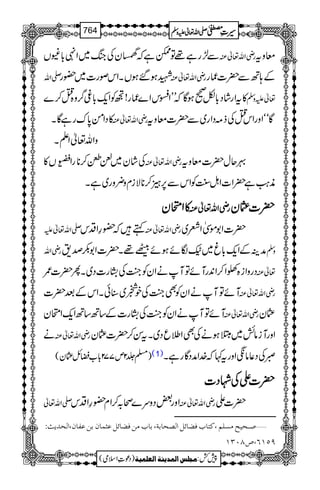 سیرتِ مصطفی صلی اللہ تعالیٰ علیہ وسلم 764
معاویہ رضی اللہ تعالیٰ عنہ سے لڑ رہے تھے تو ممکن ہے کہ گھمسان کی جنگ میں انہی باغیوں
کے ہاتھ سے حضرت عمار رضی اللہ تعالیٰ عنہ شہید ہو گئے ہوں۔ اس صورت میں حضور صلی اللہ
تعالیٰ علیہ وسلم کا یہ ارشاد بالکل صحیح ہوگا کہ ’’افسوس اے عمار! تجھ کو ایک باغی گروہ قتل کرے
گا‘‘ اور اس قتل کی ذمہ داری سے حضرت معاویہ رضی اللہ تعالیٰ عنہ کا دامن پاک رہے گا۔
واللہ تعالیٰ اعلم۔
بہرحال حضرت معاویہ رضی اللہ تعالیٰ عنہ کی شان میں لعن طعن کرنا رافضیوں کا
مذہب ہے حضرات اہل سنت کو اس سے پرہیز کرنا لازم و ضروری ہے۔
حضرت عثمان رضی اللہ تعالیٰ عنہ کا امتحان
حضرت ابو موسیٰ اشعری رضی اللہ تعالیٰ عنہ کہتے ہیں کہ حضورِ اقدس صلی اللہ تعالیٰ علیہ
وسلم مدینہ کے ایک باغ میں ٹیک لگائے ہوئے بیٹھے تھے۔ حضرت ابوبکر صدیق رضی اللہ
تعالیٰ عنہ دروازہ کھلوا کر اندر آئے تو آپ نے ان کو جنت کی بشارت دی۔ پھر حضرت عمر
رضی اللہ تعالیٰ عنہ آئے تو آپ نے ان کو بھی جنت کی خوشخبری سنائی۔ اس کے بعد حضرت
عثمان رضی اللہ تعالیٰ عنہ آئے تو آپ نے ان کو جنت کی بشارت کے ساتھ ساتھ ایک امتحان
اور آزمائش میں مبتلا ہونے کی بھی اطلاع دی۔ یہ سن کر حضرت عثمان رضی اللہ تعالیٰ عنہ نے
صبر کی دعا مانگی اور یہ کہا کہ خدا مددگار ہے۔ (1) (مسلم جلد۲ ص۲۷۷ باب فضائل عثمان)
حضرت علی کی شہادت
حضرت علی رضی اللہ تعالیٰ عنہ اور بعض دوسرے صحابہ کرام سے حضورِ اقدس صلی اللہ تعالیٰ
صحیح مسلم ،کتاب فضائل الصحابة، باب من فضائل عثمان بن عفان،الحدیث:
٦١٥٩،ص١٣٠٨
پیش کش: مجلس المدینة العلمیة (دعوتِ اسلامی)